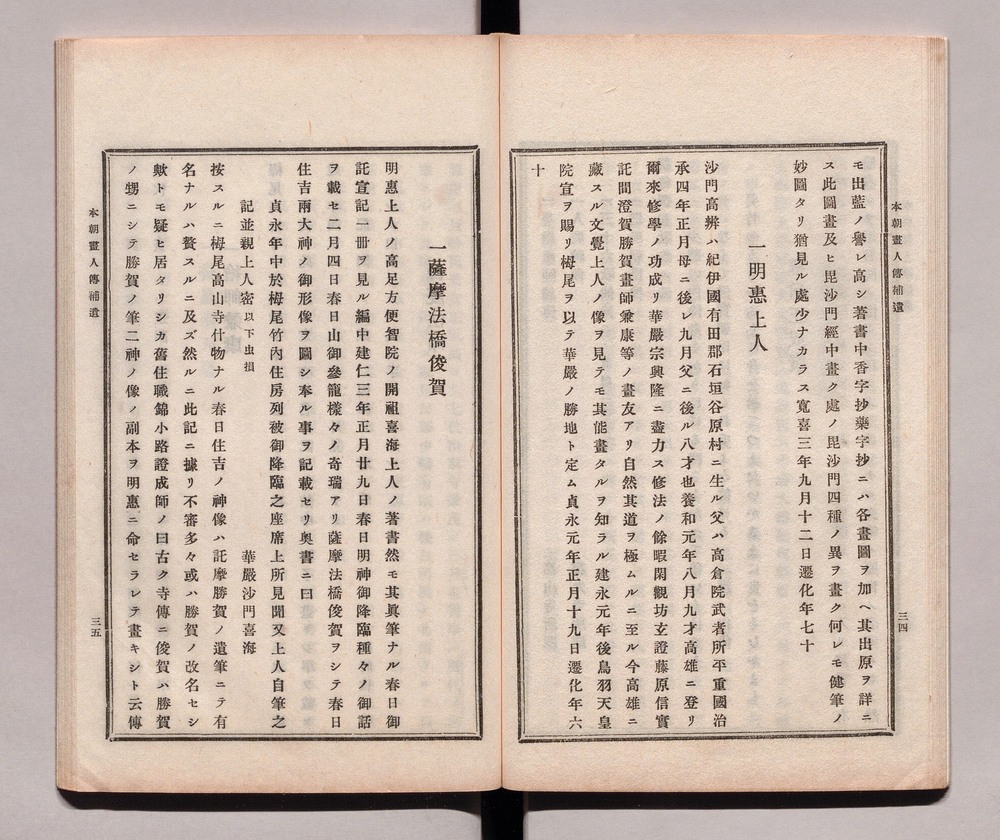 本朝畫人傳補遺
三四
モ出藍ノ譽レ高シ著書中香字抄藥字抄ニハ各畫圖ヲ加ヘ其出原ヲ詳ニ
ス此圖畫及ヒ毘沙門經中畫ク處ノ毘沙門四種ノ異ヲ畫ク何レモ健筆ノ
妙圖タリ猶見ル處少ナカラス寬喜三年九月十二日遷化年七十
一明惠上人
沙門高辨ハ紀伊國有田郡石垣谷原村ニ生ル父ハ高倉院武者所平重國治
承四年正月母ニ後レ九月父ニ後ル八才也養和元年八月九才高雄ニ登リ
爾來修學ノ功成リ華嚴宗興隆ニ盡力ス修法ノ餘暇閑觀坊玄證藤原信實
託間澄賀勝賀畫師兼康等ノ畫友アリ自然其道ヲ極ムルニ至ル今高雄ニ
藏スル文覺上人ノ像ヲ見テモ其能畫タルヲ知ラル建永元年後鳥羽天皇
院宣ヲ賜リ栂尾ヲ以テ華嚴ノ勝地ト定ム貞永元年正月十九日遷化年六
十
一薩摩法橋俊賀
明惠上人ノ高足方便智院ノ開祖喜海上人ノ著書然モ其眞筆ナル春日御
託宣記一冊ヲ見ル編中建仁三年正月廿九日春日明神御降臨種々ノ御話
ヲ載セ二月四日春日山御參籠樣々ノ奇瑞アリ薩摩法橋俊賀ヲシテ春日
住吉兩大神ノ御形像ヲ圖シ奉ル事ヲ記載セリ奧書ニ曰
貞永年中於栂尾竹內住房列被御降臨之座席上所見聞又上人自筆之
記並親上人密以下虫損 華嚴沙門喜海
按スルニ栂尾高山寺什物ナル春日住吉ノ神像ハ託摩勝賀ノ遺筆ニテ有
名ナルハ贅スルニ及ズ然ルニ此記ニ據リ不審多々或ハ勝賀ノ改名セシ
歟トモ疑ヒ居タリシカ舊住職錦小路證成師ノ曰古ク寺傳ニ俊賀ハ勝賀
ノ甥ニシテ勝賀ノ筆二神ノ像ノ副本ヲ明惠ニ命セラレテ畫キシト云傳
本朝畫人傳補遺
三五